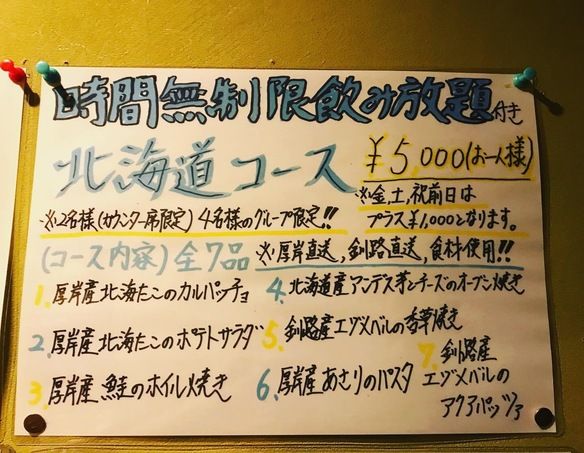 時間無制限飲み放題付き
北海道コース ¥5,000(お一人様)
※金土,祝前日は
プラス¥1,000となります。
※2名様(カウンター席限定)4名様のグループ限定!!
(コース内容)全7品 ※厚岸直送,釧路直送,食材使用!!
1.厚岸産北海たこのカルパッチョ
2.厚岸産北海たこのポテトサラダ
3.厚岸産鮭のホイル焼き
4.北海道産アンデス芋とチーズのオーブン焼き
5.釧路産エゾメバルの香草焼き
6.厚岸産あさりのパスタ
7.釧路産
エゾメバルの
アクアパッツァ